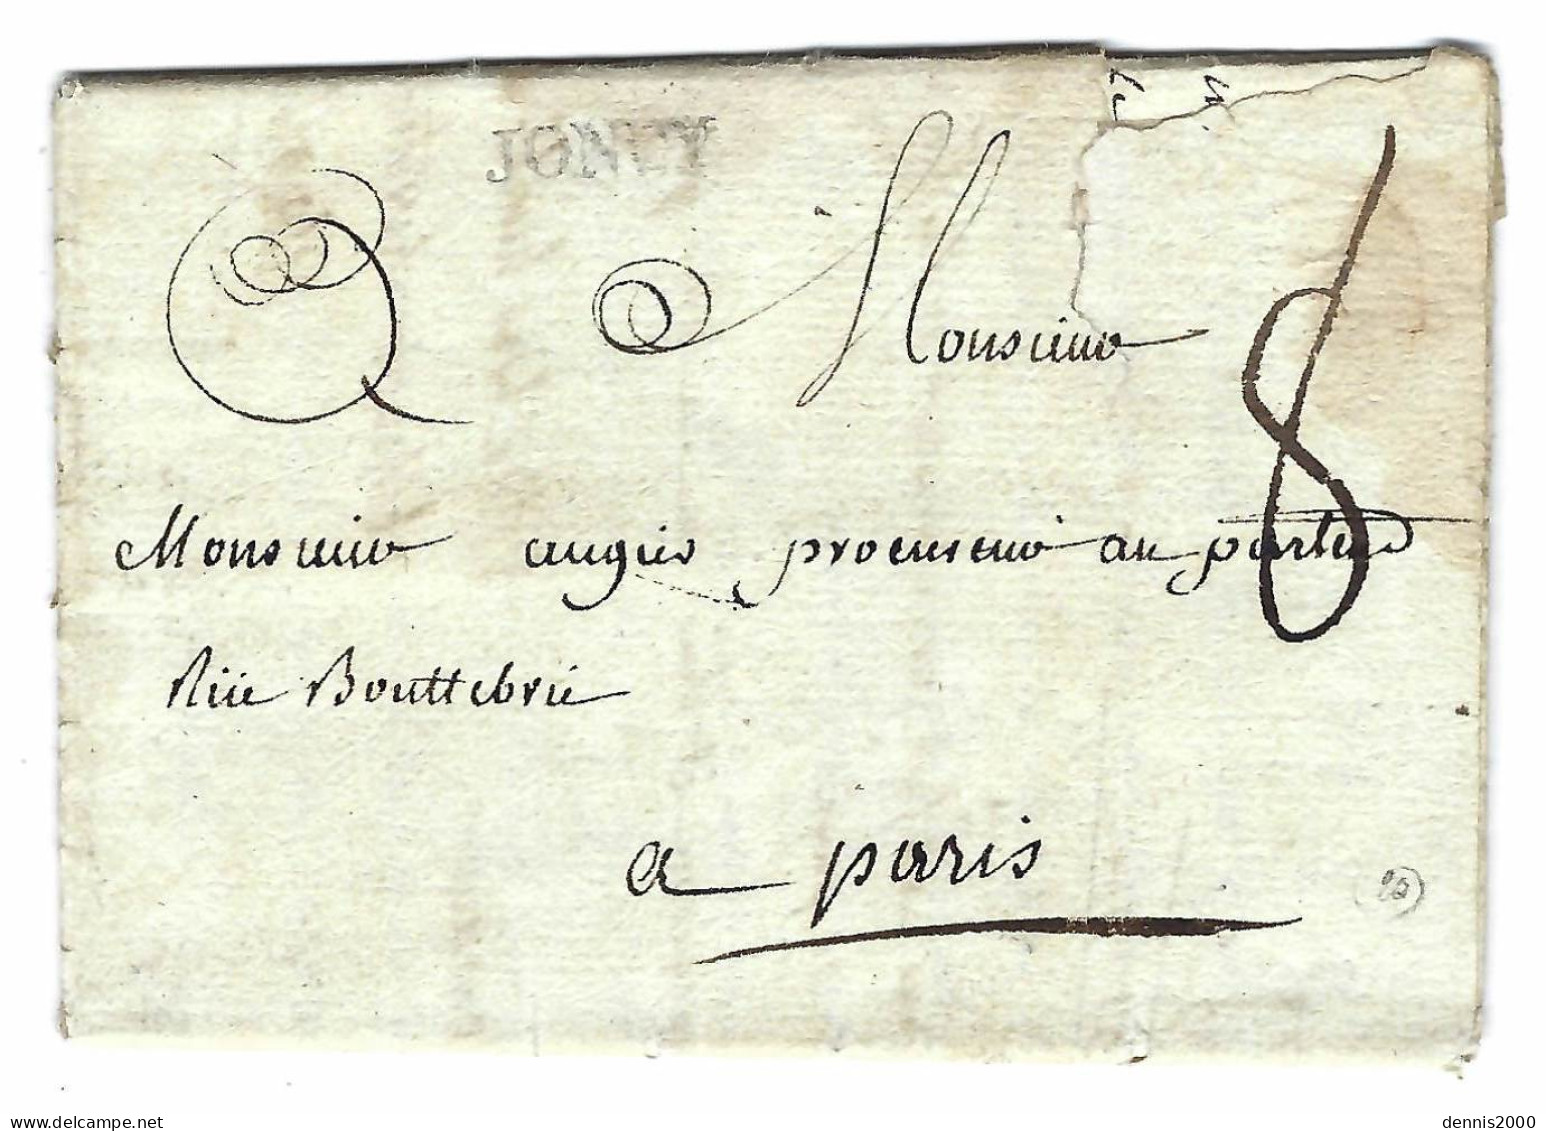 JOIGNY
8
Monsieur
Monsieur augier procureur au parlem
Rüe Bouttebrie
a paris
20
delcampe.net
dennis2000